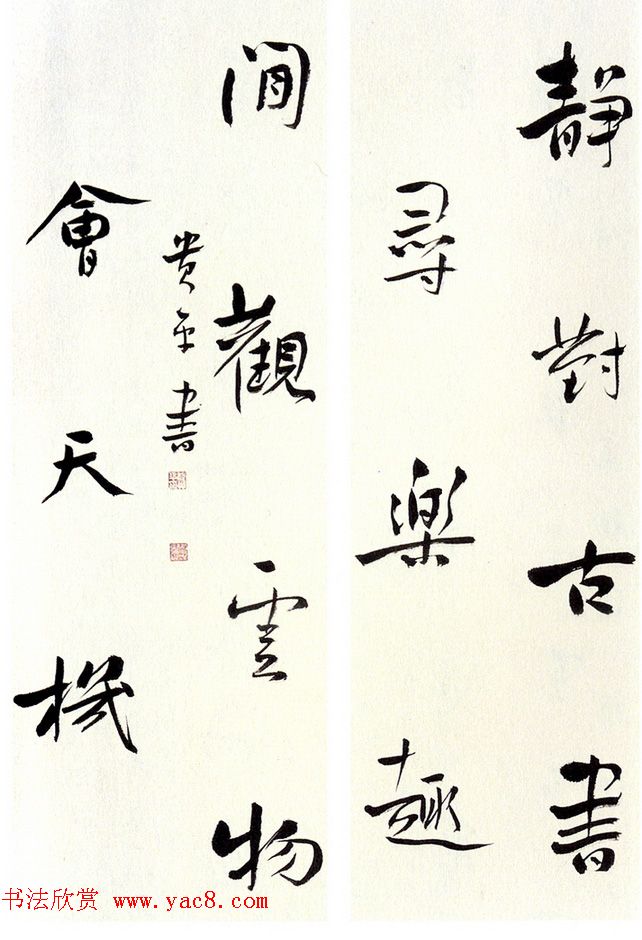 靜對古書
尋樂趣
閒觀雲物
會天機
贵平書
书法欣赏 www.yac8.com